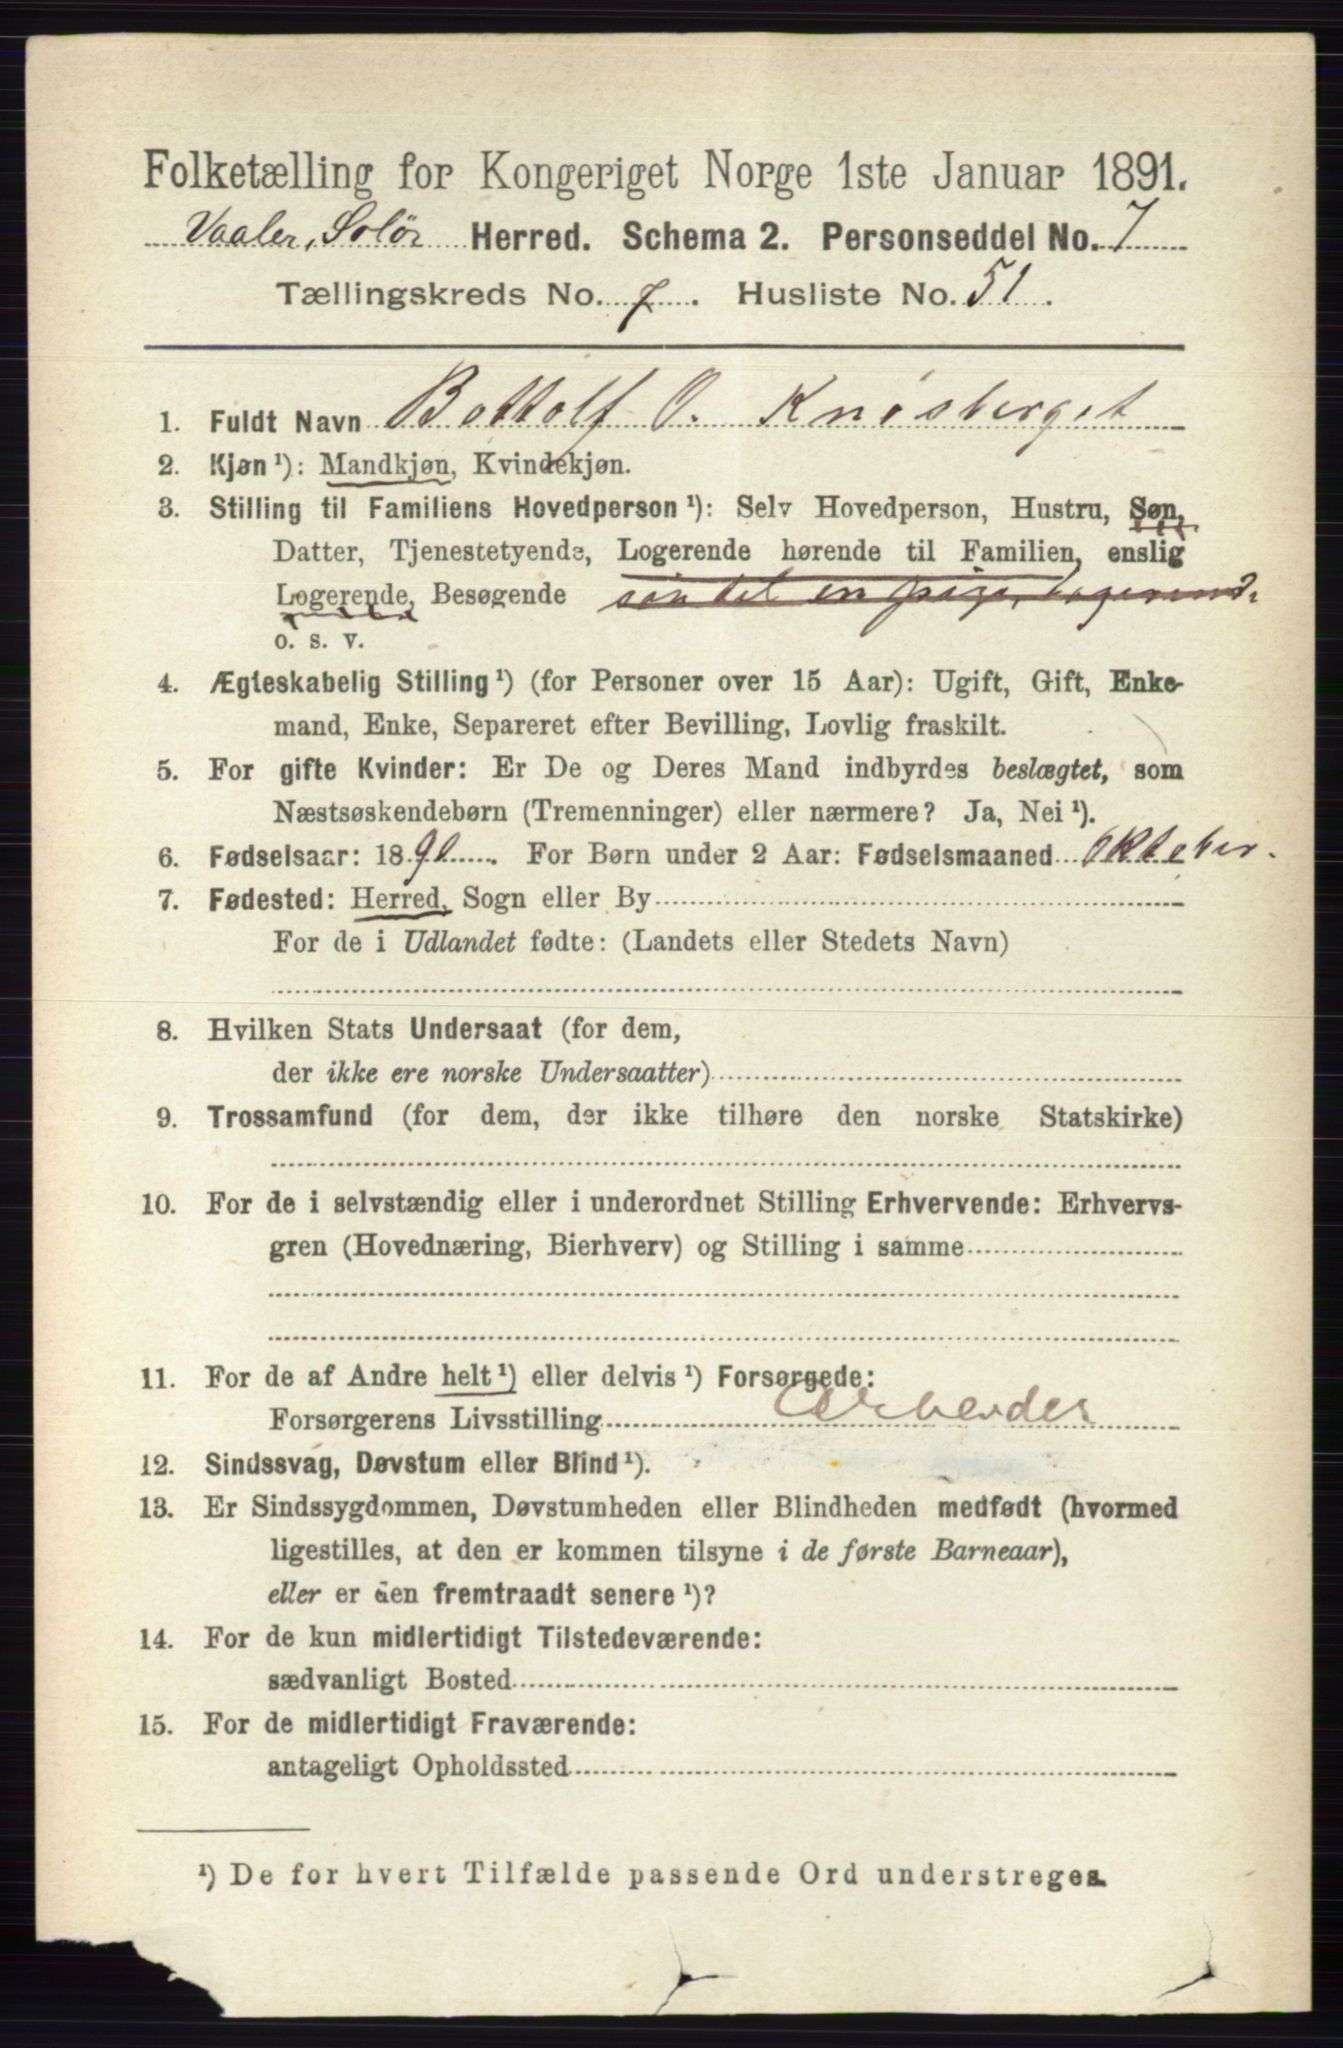 Folketælling for Kongeriget Norge 1ste Januar 1891.
Vaaler, Solør Herred. Schema 2. Personseddel No. 7
Tællingskreds No. 7. Husliste No. 51.
1. Fuldt Navn Bottolf O. Knøsberget
2. Kjøn ¹): Mandkjøn, Kvindekjøn.
3. Stilling til Familiens Hovedperson ¹): Selv Hovedperson, Hustru, Søn,
Datter, Tjenestetyende, Logerende hørende til Familien, enslig
Logerende, Besøgende søn til en pige, logerend.
o. s. v.
4. Ægteskabelig Stilling ¹) (for Personer over 15 Aar): Ugift, Gift, Enke-
mand, Enke, Separeret efter Bevilling, Lovlig fraskilt.
5. For gifte Kvinder: Er De og Deres Mand indbyrdes beslægtet, som
Næstsøskendebørn (Tremenninger) eller nærmere? Ja, Nei ¹).
6. Fødselsaar: 1890. For Børn under 2 Aar: Fødselsmaaned Oktober.
7. Fødested: Herred, Sogn eller By
For de i Udlandet fødte: (Landets eller Stedets Navn)
8. Hvilken Stats Undersaat (for dem,
der ikke ere norske Undersaatter)
9. Trossamfund (for dem, der ikke tilhøre den norske Statskirke)
10. For de i selvstændig eller i underordnet Stilling Erhvervende: Erhvervs-
gren (Hovednæring, Bierhverv) og Stilling i samme
11. For de af Andre helt ¹) eller delvis ¹) Forsørgede:
Forsørgerens Livsstilling Arbeider
12. Sindssvag, Døvstum eller Blind ¹).
13. Er Sindssygdommen, Døvstumheden eller Blindheden medfødt (hvormed
ligestilles, at den er kommen tilsyne i de første Barneaar),
eller er den fremtraadt senere ¹)?
14. For de kun midlertidigt Tilstedeværende:
sædvanligt Bosted
15. For de midlertidigt Fraværende:
antageligt Opholdssted
¹) De for hvert Tilfælde passende Ord understreges.